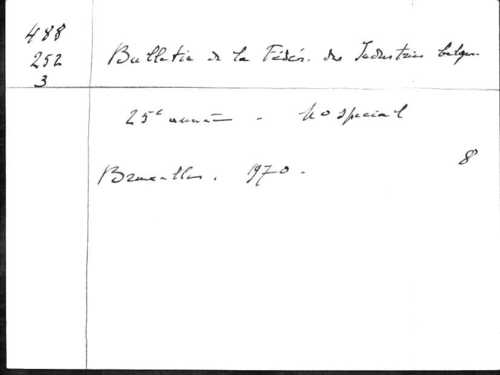 488
252
3
Bulletin de la Fédér. des Industries belges
25e année - No special
Bruxelles. 1970.
8